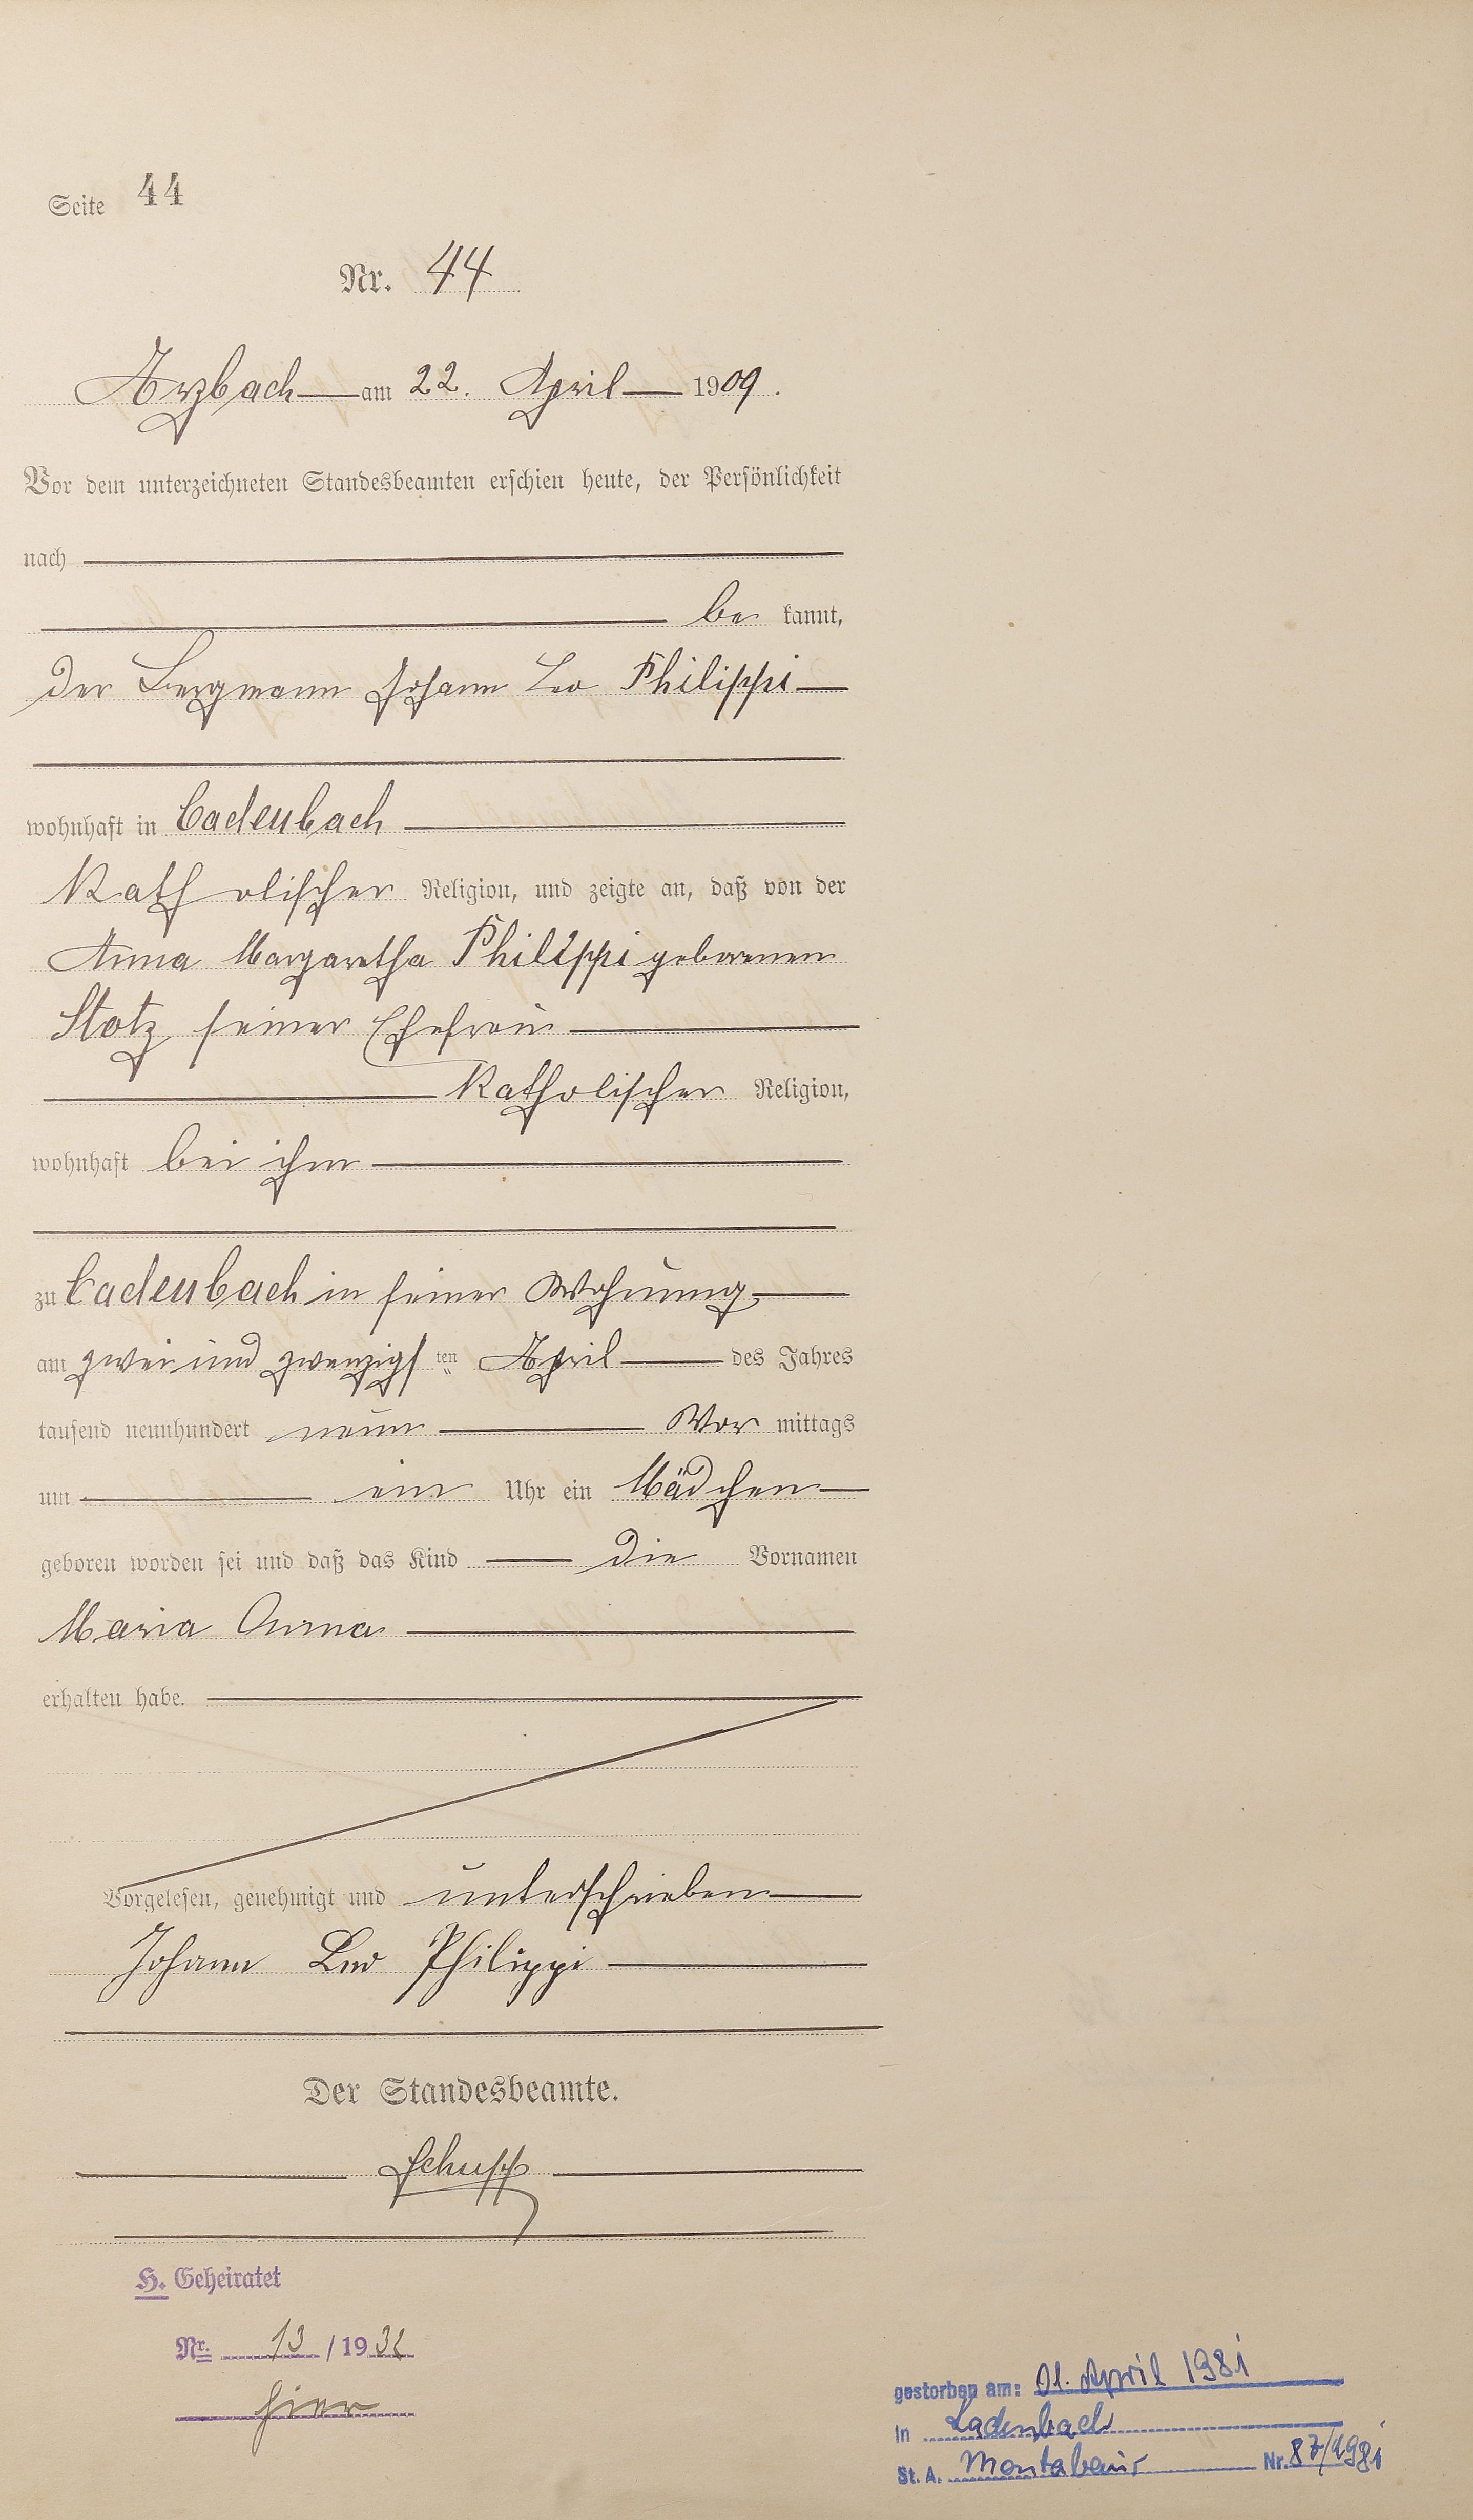 Seite 44
Nr. 44
Arzbach am 22. April 1909.
Vor dem unterzeichneten Standesbeamten erschien heute, der Persönlichkeit
nach
be kannt,
der Bergmann Johann Leo Philippi
wohnhaft in Cadenbach
Katholischer Religion, und zeigte an, daß von der
Anna Margaretha Philippi geborenen
Stotz, seiner Ehefrau
Katholischer Religion,
wohnhaft bei ihm
zu Cadenbach in seiner Wohnung
am zwei und zwanzigsten April des Jahres
tausend neunhundert neun Vor mittags
um ein Uhr ein Mädchen
geboren worden sei und daß das Kind die Vornamen
Maria Anna
erhalten habe.
Vorgelesen, genehmigt und unterschrieben
Johann Leo Philippi
Der Standesbeamte.
Schupp
H. Geheiratet
Nr. 13 / 19
hier
gestorben am: 01. April 1981
In Cadenbach
St. A. Montabaur Nr. 87/1981